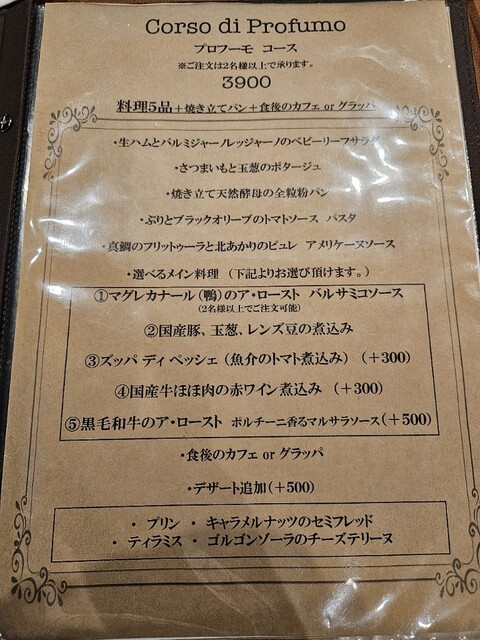 Corso di Profumo
プロフーモ コース
※ご注文は2名様以上で承ります。
3900
料理5品+焼き立てパン+食後のカフェ or グラッパ
・生ハムとパルミジャーノレッジャーノのベビーリーフサラダ
・さつまいもと玉葱のポタージュ
・焼き立て天然酵母の全粒粉パン
・ぶりとブラックオリーブのトマトソース パスタ
・真鯛のフリットゥーラと北あかりのピュレ アメリケーヌソース
・選べるメイン料理 (下記よりお選び頂けます。)
①マグレカナール(鴨)のア・ロースト バルサミコソース
(2名様以上でご注文可能)
②国産豚、玉葱、レンズ豆の煮込み
③ズッパ ディ ペッシェ (魚介のトマト煮込み) (+300)
④国産牛ほほ肉の赤ワイン煮込み (+300)
⑤黒毛和牛のア・ロースト ポルチーニ香るマルサラソース(+500)
・食後のカフェ or グラッパ
・デザート追加(+500)
・ プリン ・ キャラメルナッツのセミフレッド
・ ティラミス ・ ゴルゴンゾーラのチーズテリーヌ